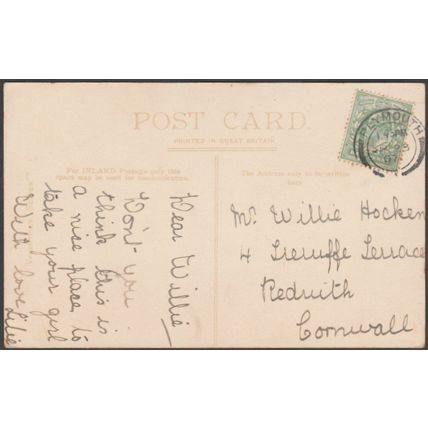 POST CARD.
PRINTED IN GREAT BRITAIN
For INLAND Postage only this
space may be used for communication.
The Address only to be written
here
Dear Willie
Don't you
think this is
a nice place to
take your girl
With love Lilie
Mr. Willie Hocken
4 Treruffe Terrace
Redruth
Cornwall
PLYMOUTH